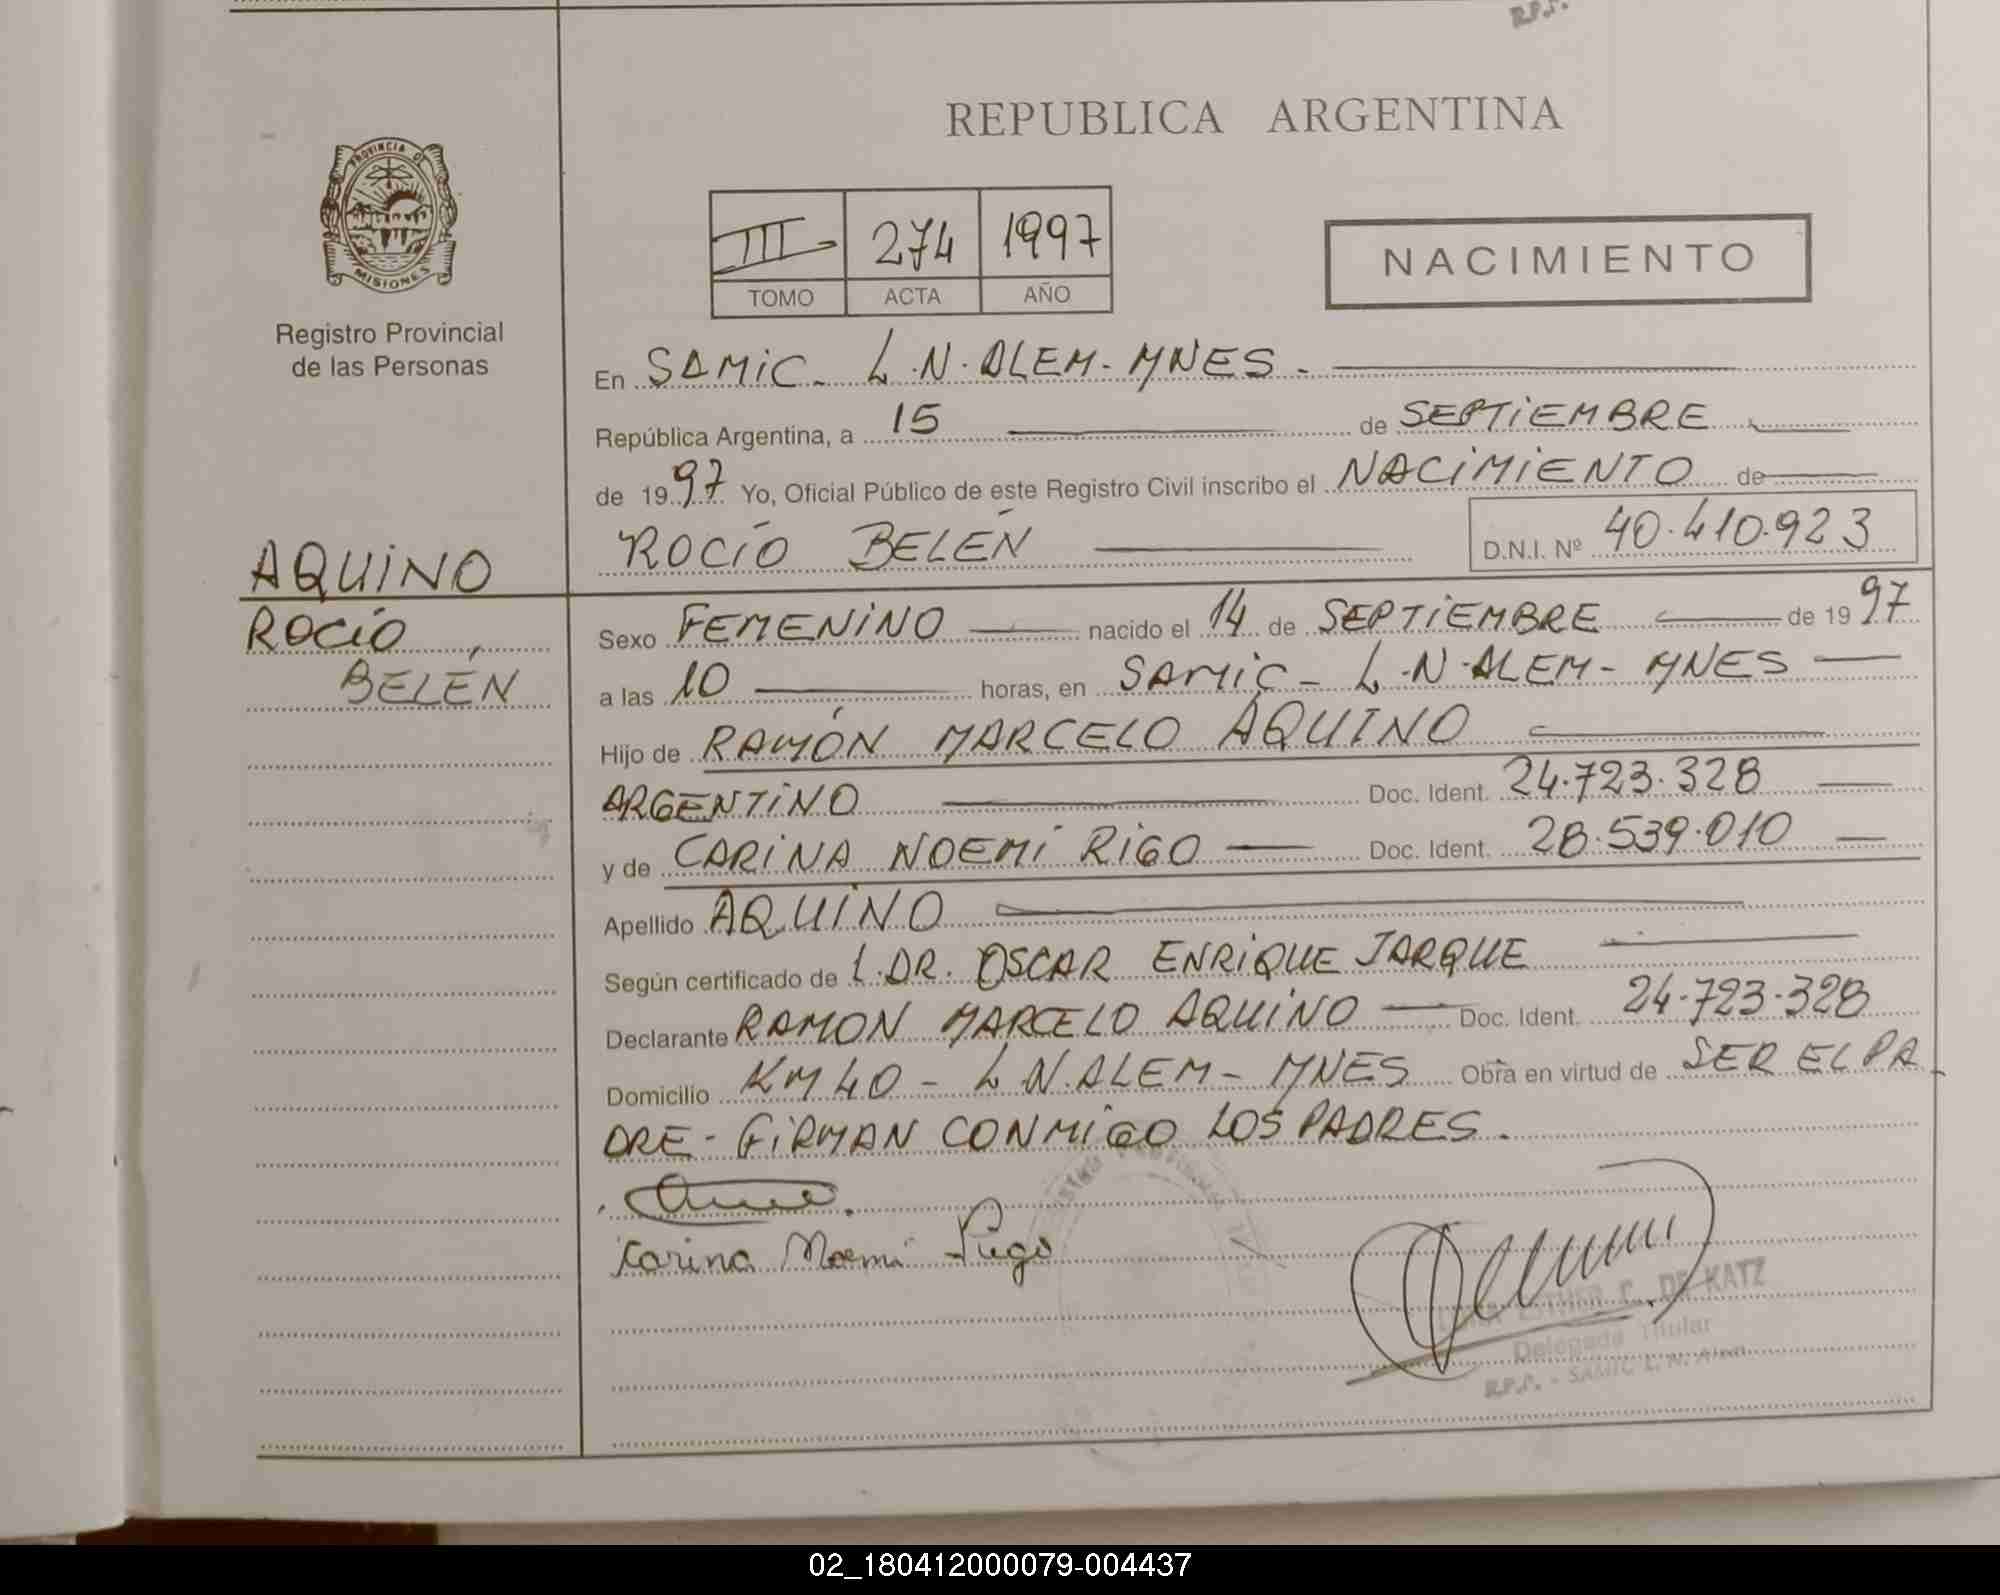 R.P.P.
REPUBLICA ARGENTINA
PROVINCIA DE
MISIONES
Registro Provincial
de las Personas
III 274 1997
TOMO ACTA AÑO
NACIMIENTO
En SAMIC - L.N. ALEM - MNES -
República Argentina, a 15 de SEPTIEMBRE
de 1997 Yo, Oficial Público de este Registro Civil inscribo el NACIMIENTO de
ROCÍO BELÉN D.N.I. Nº 40.410.923
AQUINO
ROCÍO
BELÉN
Sexo FEMENINO nacido el 14 de SEPTIEMBRE de 1997
a las 10 horas, en SAMIC - L.N. ALEM - MNES
Hijo de RAMÓN MARCELO AQUINO
ARGENTINO Doc. Ident. 24.723.328
y de CARINA NOEMÍ RIGO Doc. Ident. 28.539.010
Apellido AQUINO
Según certificado de L. DR. OSCAR ENRIQUE JARQUE
Declarante RAMON MARCELO AQUINO Doc. Ident. 24.723.328
Domicilio KM 40 - L.N. ALEM - MNES Obra en virtud de SER EL PA
DRE - FIRMAN CONMIGO LOS PADRES.
Karina Noemí Rigo
ESTHER C. DE KATZ
Delegada Titular
R.P.P. - SAMIC L. N. Alem
02_180412000079-004437